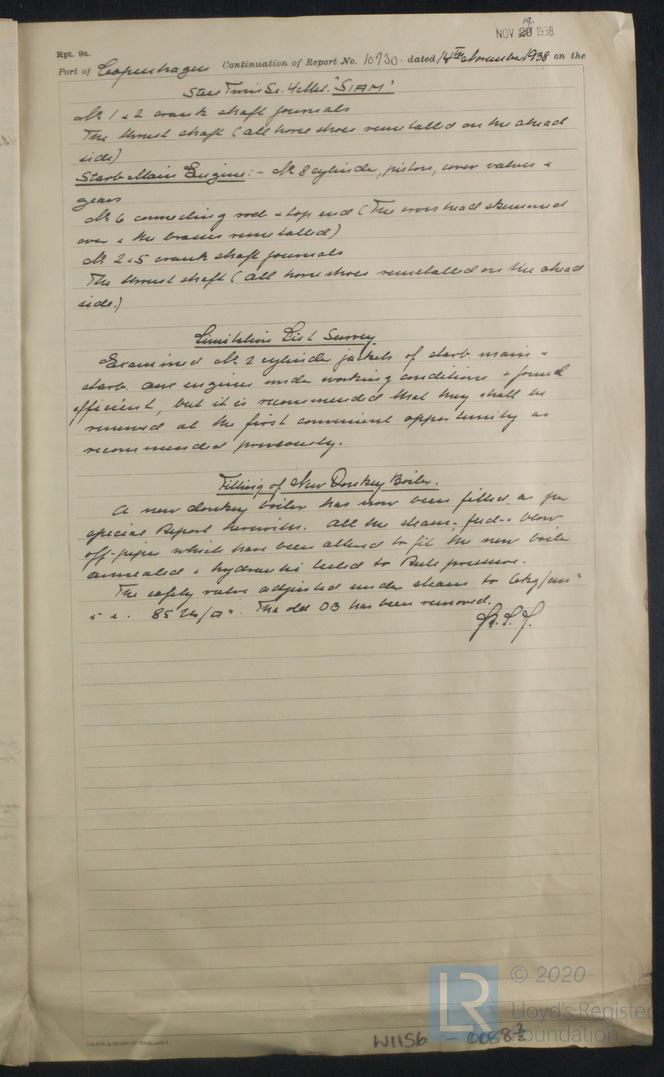 NOV 20 1938
19
Rpt. 9a.
Port of Copenhagen Continuation of Report No. 10730 dated 14th November 1938 on the
Steel Twin Sc. "SIAM"
No 1 & 2 crank shaft journals
The thrust shaft (all horse shoes remetalled on the ahead
side)
Starb Main Engine:- No 8 cylinder, piston, cover valves &
gears
No 6 connecting rod & top end (The crosshead skimmed
over & the brasses remetalled)
No 2 & 5 crank shaft journals
The thrust shaft (all horse shoes remetalled on the ahead
side.)
Limitation List Survey.
Examined No 2 cylinder jackets of starb. main &
starb. aux engines under working conditions & found
efficient, but it is recommended that they shall be
renewed at the first convenient opportunity as
recommended previously.
Fitting of New Donkey Boiler.
A new donkey boiler has now been fitted as per
special Report herewith. All the steam-, feed- & blow
off-pipes which have been altered to fit the new boiler
annealed & hydraulic tested to Rule pressure.
The safety valve adjusted under steam to 6kg/cm²
i.e. 85 lbs/□". The old DB has been removed.
© 2020
LR
Lloyd's Register
Foundation
W1156 - 0088 2/2